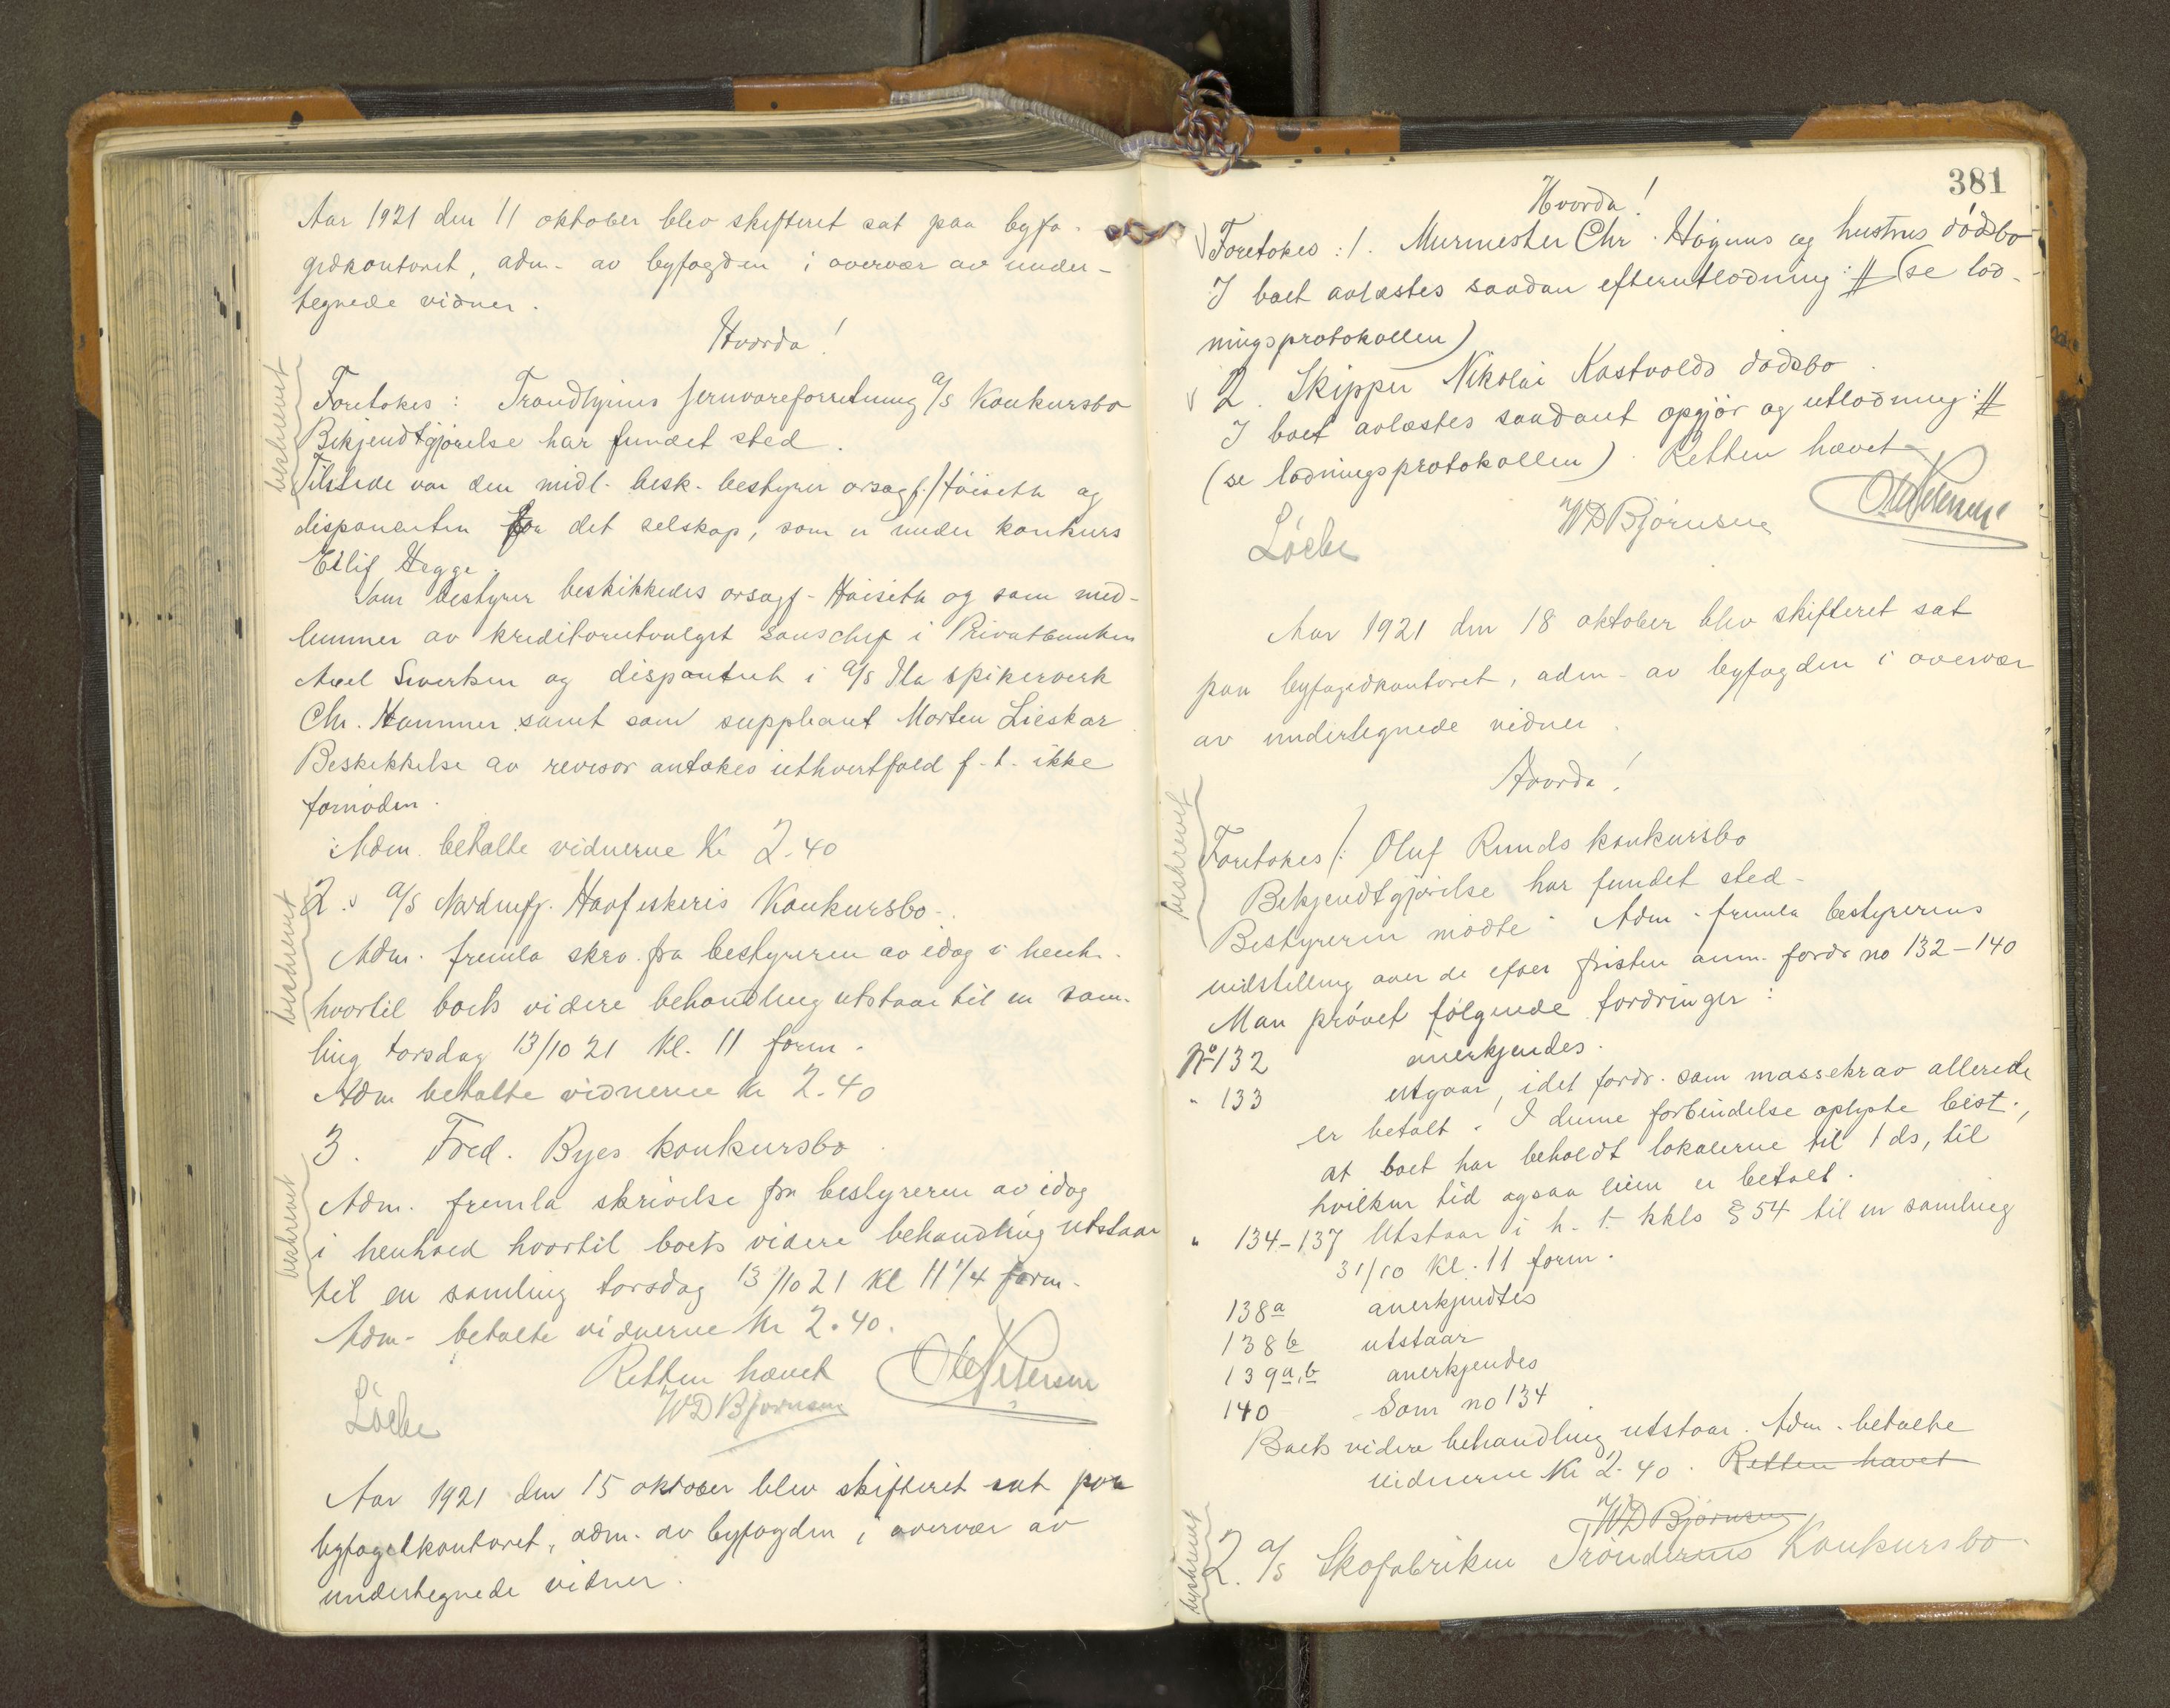 Aar 1921 den 11 oktober blev skifteret sat paa byfo-
gedkontoret, adm. av byfogden i overvær av under-
tegnede vidner.
Hvorda!
beskrevet
Foretokes: Trondhjems Jernvareforretning A/S Konkursbo
Bekjendtgjørelse har fundet sted.
Tilstede var den midl. besk. bestyrer orsagf. Høiseth og
disponenten for det selskap, som er under konkurs
Eilif Hegge.
Som bestyrer beskikkedes orsagf. Høiseth og som med-
lemmer av kreditorutvalget sauschef i Privatbanken
Axel Sverken og disponent i A/S Ila spikerverk
Chr. Hammer samt som suppleant Morten Lieskar
Beskikkelse av revisor antokes iethvertfald f. t. ikke
fornøden.
Adm. betalte vidnerne Kr 2.40
beskrevet
2. A/S Nordenfj. Havfiskeris Konkursbo.
Adm. fremla skrv. fra bestyreren av idag i henh.
hvortil boets videre behandling utstaar til en sam-
ling torsdag 13/10 21 kl. 11 form.
Adm betalte vidnerne kr 2.40
beskrevet
3. Fred. Byes konkursbo
Adm. fremla skrivelse fra bestyreren av idag
i henhold hvortil boets videre behandling utstaar
til en samling torsdag 13/10 21 Kl 11 1/4 form.
Adm. betalte vidnerne Kr 2.40.
Retten hævet Ole Petersen
Löche WD Bjørnsen
Aar 1921 den 15 oktober blev skifteret sat paa
byfogedkontoret, adm. av byfogden i overvær av
undertegnede vidner.
381
Hvorda!
Foretokes: 1. Murmester Chr. Høgnus og hustrus dødsbo
I boet avlæstes saadan efterutlodning: # (se lod-
ningsprotokollen)
2. Skipper Nikolai Kastvolds dødsbo
I boet avlæstes saadant opgjør og utlodning: #
(se lodningsprotokollen). Retten hævet
Löche WD Bjørnsen Ole Petersen
Aar 1921 den 18 oktober blev skifteret sat
paa byfogedkontoret, adm. av byfogden i overvær
av undertegnede vidner.
Hvorda!
beskrevet
Foretokes 1: Oluf Runds konkursbo
Bekjendtgjørelse har fundet sted.
Bestyreren mødte. Adm. fremla bestyrerens
indstilling over de efter fristen anm. fordr no 132-140
Man prøvet følgende fordringer:
No 132 anerkjendes.
" 133 utgaar, idet fordr. som massekrav allerede
er betalt. I denne forbindelse oplyste best.,
at boet har beholdt lokalerne til 1 ds, til
hvilken tid ogsaa leien er betalt.
" 134-137 Utstaar i h. t. kkls § 54 til en samling
31/10 kl. 11 form.
138a anerkjendtes
138b utstaar
139a,b anerkjendes
140 Som no 134
Boets videre behandling utstaar. Adm. betalte
vidnerne Kr 2.40. Retten hævet
WD Bjørnsen
beskrevet
2. A/S Skofabriken Trønderens Konkursbo